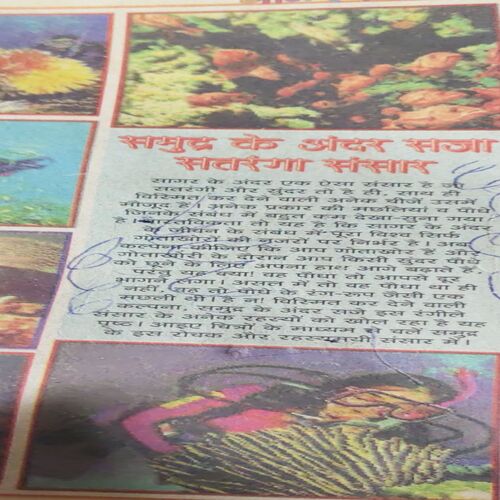 समुद्र के अंदर सजा
सतरंगा संसार
सागर के अंदर एक ऐसा संसार है जो
सतरंगी और सुंदर तो है ही, साथ ही
विस्मित कर देने वाली अनेक चीजें उसमें
मौजूद हैं। अनेक प्रकार की मछलियां व पौधे
जिनके संबंध में बहुत कम देखा-सुना गया
है। वास्तविकता तो यह है कि सागर के अंदर
के जीवन के संबंध में पूरा विश्व सिर्फ
गोताखोरों की नजरों पर निर्भर है। अब
कल्पना कीजिए कि आप गोताखोर हैं।
गोताखोरी के दौरान आप किसी सुंदर पौधे
को छूने के लिए अपना हाथ आगे बढ़ाते हैं,
परंतु यह क्या! वह पौधा तो आपसे दूर
भागने लगा। असल में तो यह पौधा था ही
नहीं, यह तो पौधे के रंग-रूप जैसी एक
मछली थी। है न! विस्मित कर देने वाली
कल्पना, समुद्र के अंदर सजे इस रंगीले
संसार के अनेक रहस्यों को खोल रहा है यह
पृष्ठ। आइए चित्रों के माध्यम से चलें समुद्र
के इस रोचक और रहस्यमयी संसार में।